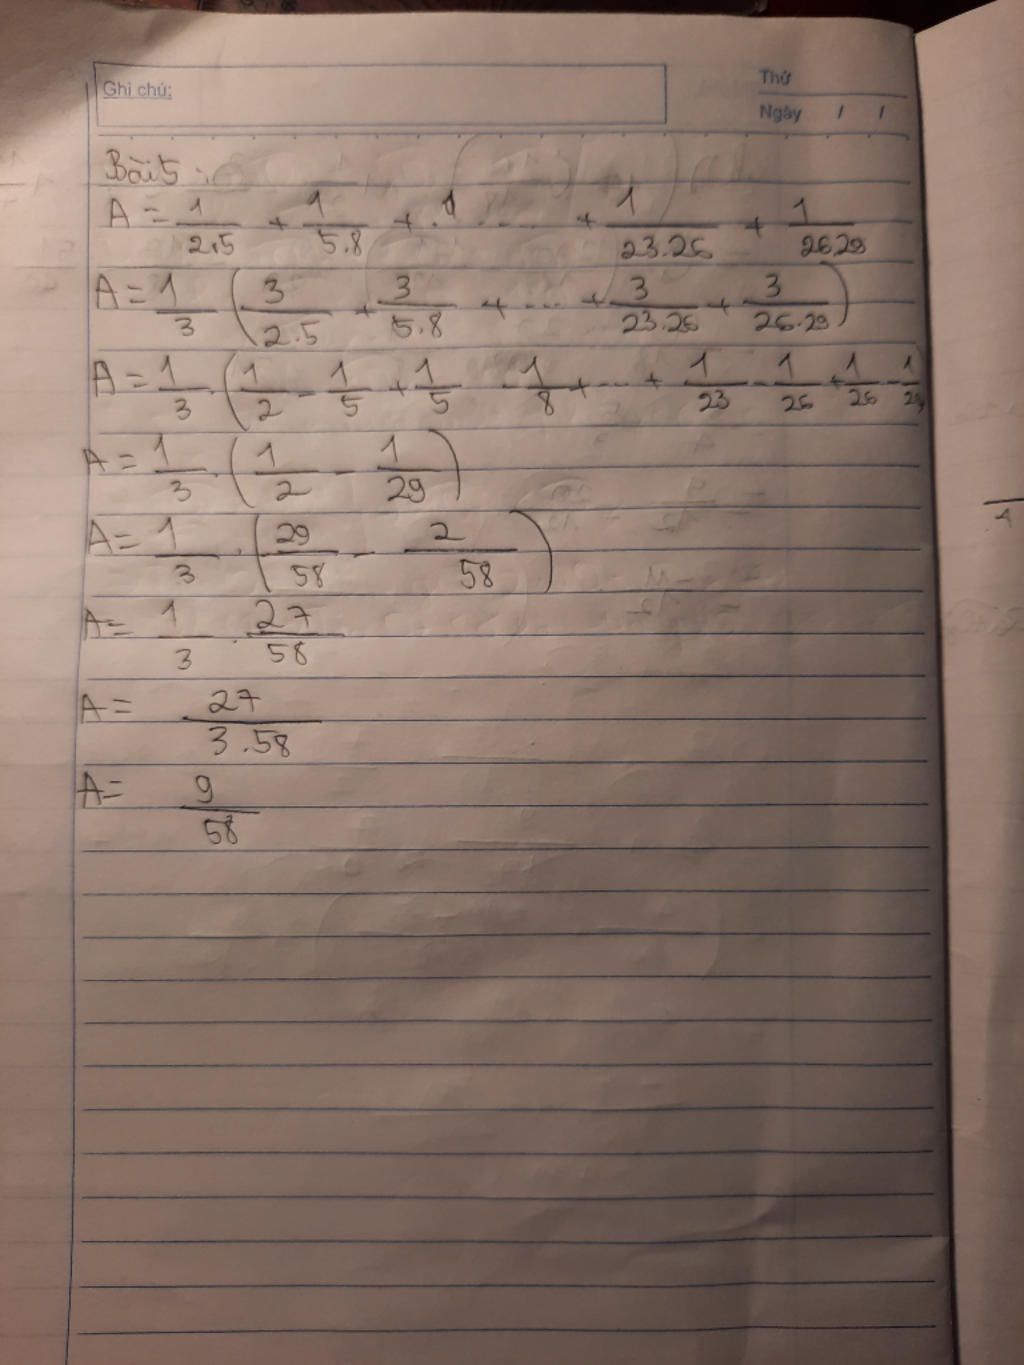 Ghi chú:
Thứ
Ngày / /
Bài 5:
A = 1/2.5 + 1/5.8 + .... + 1/23.26 + 1/26.29
A = 1/3 (3/2.5 + 3/5.8 + .... + 3/23.26 + 3/26.29)
A = 1/3 . (1/2 - 1/5 + 1/5 - 1/8 + ... + 1/23 - 1/26 + 1/26 - 1/29)
A = 1/3 . (1/2 - 1/29)
A = 1/3 . (29/58 - 2/58)
A = 1/3 . 27/58
A = 27/3.58
A = 9/58